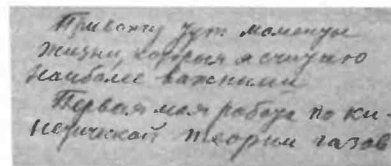 Привожу тут моменты
жизни, которые я считаю
наиболее важными
Первая моя работа по ки-
нетической теории газов